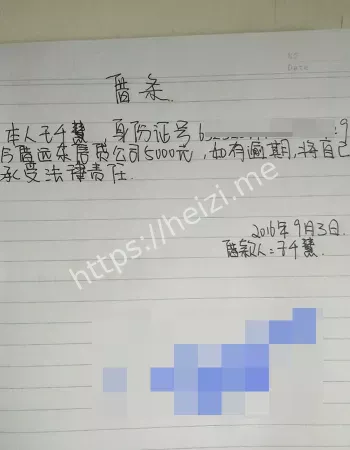 Date
借条.
本人千慧，身份证号
借远东信贷公司5000元，如有逾期,将自己
承受法律责任.
2016年9月3日.
借款人:千慧.
https://heizi.me